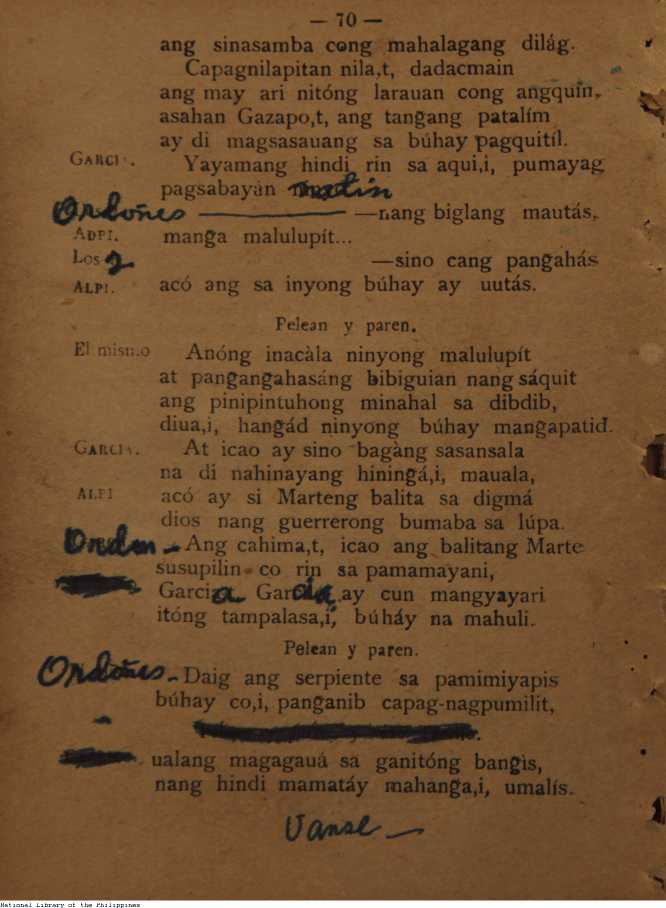 — 70 —
ang sinasamba cong mahalagang dilág.
Capagnilapitan nila,t, dadacmain
ang may ari nitóng larauan cong angquin,
asahan Gazapo,t, ang tang̃ang patalím
ay di magsasauang sa búhay pagquitíl.
GARCIA. Yayamang hindi rin sa aqui,i, pumayag
pagsabayán natin
Ordoñes — —nang biglang mautás,
ADPI. mang̃a malulupít...
Los 2 —sino cang pang̃ahás
ALPI. acó ang sa inyong búhay ay uutás.
Pelean y paren.
El mismo Anóng inacàla ninyong malulupít
at pang̃ang̃ahasáng bibiguian nang sáquit
ang pinipintuhong minahal sa dibdib,
diua,i, hang̃ád ninyong búhay mang̃apatid.
GARCIA. At icao ay sino bagàng sasansala
na di nahinayang hining̃á,i, mauala,
ALPI acó ay si Marteng balita sa digmá
dios nang guerrerong bumaba sa lúpa.
Orden - Ang cahima,t, icao ang balitang Marte
susupilin co rin sa pamamayani,
Garcia Garcia ay cun mangyayari
itóng tampalasa,i, búháy na mahuli.
Pelean y paren.
Ordoñes - Daig ang serpiente sa pamimiyapis
búhay co,i, pang̃anib capag-nagpumilit,
ualang magagauá sa ganitóng bang̃is,
nang hindi mamatáy mahang̃a,i, umalís.
Vanse —
National Library of the Philippines